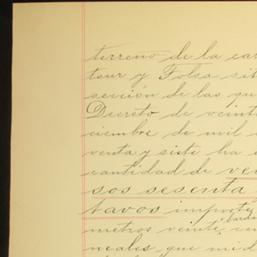 terreno de la
teur y Folsa sit
sección de las
Decreto de veint
ciembre de mil
venta y siete ha
cantidad de ve
sos sesenta
tavos importe
metros veinte
neales, que mid